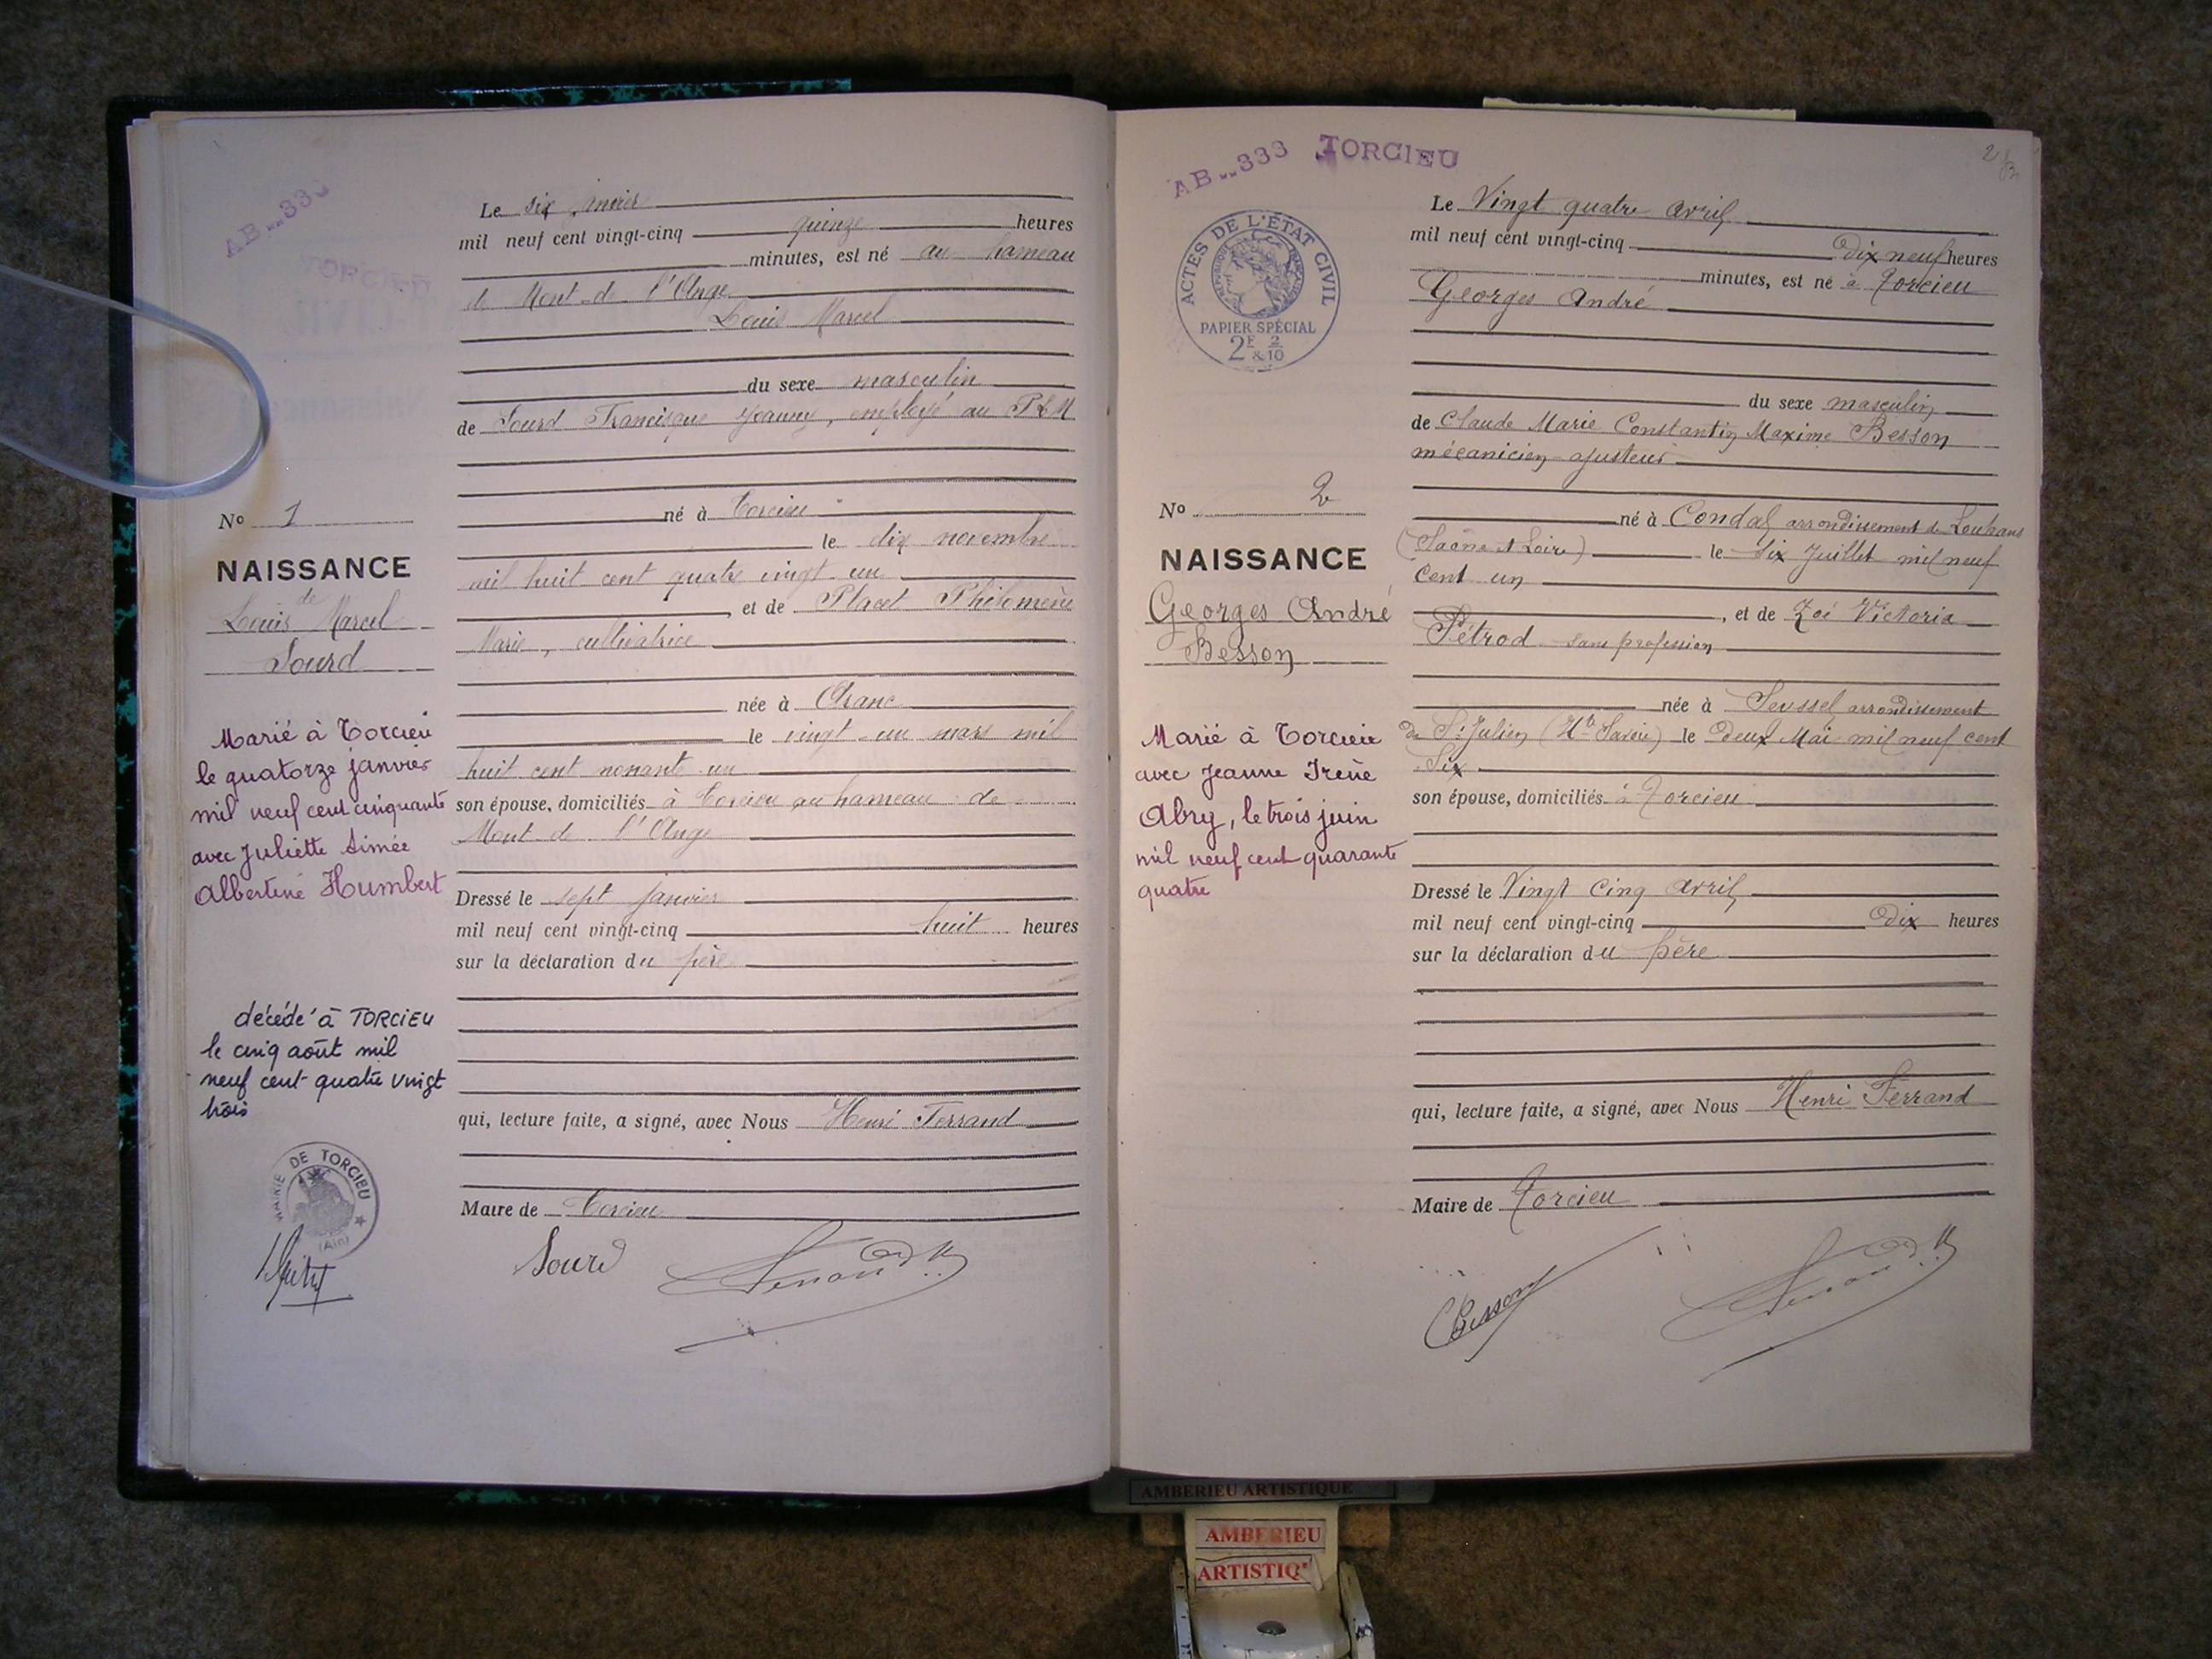 AB..333
TORCIEU
Le six janvier
mil neuf cent vingt-cinq quinze heures
minutes, est né au hameau
de Mont de l'Ange
Louis Marcel
du sexe masculin
de Sourd Francisque Joanny, employé au PLM
né à Torcieu
le dix novembre
mil huit cent quatre vingt un
, et de Placet Philomène
Marie, cultivatrice
née à Oranc
le vingt-un mars mil
huit cent nonante un
son épouse, domiciliés à Torcieu au hameau de
Mont de l'Ange
Dressé le sept janvier
mil neuf cent vingt-cinq huit heures
sur la déclaration du père
qui, lecture faite, a signé, avec Nous Henri Ferrand
Maire de Torcieu
Sourd
Ferrand
No 1
NAISSANCE
de
Louis Marcel
Sourd
Marié à Torcieu
le quatorze janvier
mil neuf cent cinquante
avec Juliette Aimée
Albertine Humbert
décédé à TORCIEU
le cinq août mil
neuf cent quatre vingt
trois
MAIRIE DE TORCIEU
(Ain)
AB..333 TORCIEU
2
ACTES DE L'ÉTAT CIVIL
PAPIER SPÉCIAL
2F 2
& 10
Le Vingt quatre avril
mil neuf cent vingt-cinq Dix neuf heures
minutes, est né à Torcieu
Georges André
du sexe masculin
de Claude Marie Constantin Maxime Besson
mécanicien-ajusteur
né à Condal arrondissement de Louhans
(Saône et Loire) le six Juillet mil neuf
cent un
, et de Zoé Victoria
Pétrod sans profession
née à Seyssel arrondissement
de St Julien (Hte Savoie) le Deux Mai mil neuf cent
Six
son épouse, domiciliés à Torcieu
Dressé le Vingt Cinq avril
mil neuf cent vingt-cinq Dix heures
sur la déclaration du père
qui, lecture faite, a signé, avec Nous Henri Ferrand
Maire de Torcieu
Besson
Ferrand
No 2
NAISSANCE
Georges André
Besson
Marié à Torcieu
avec Jeanne Irène
Abry, le trois juin
mil neuf cent quarante
quatre
AMBERIEU ARTISTIQUE
AMBERIEU
ARTISTIQ